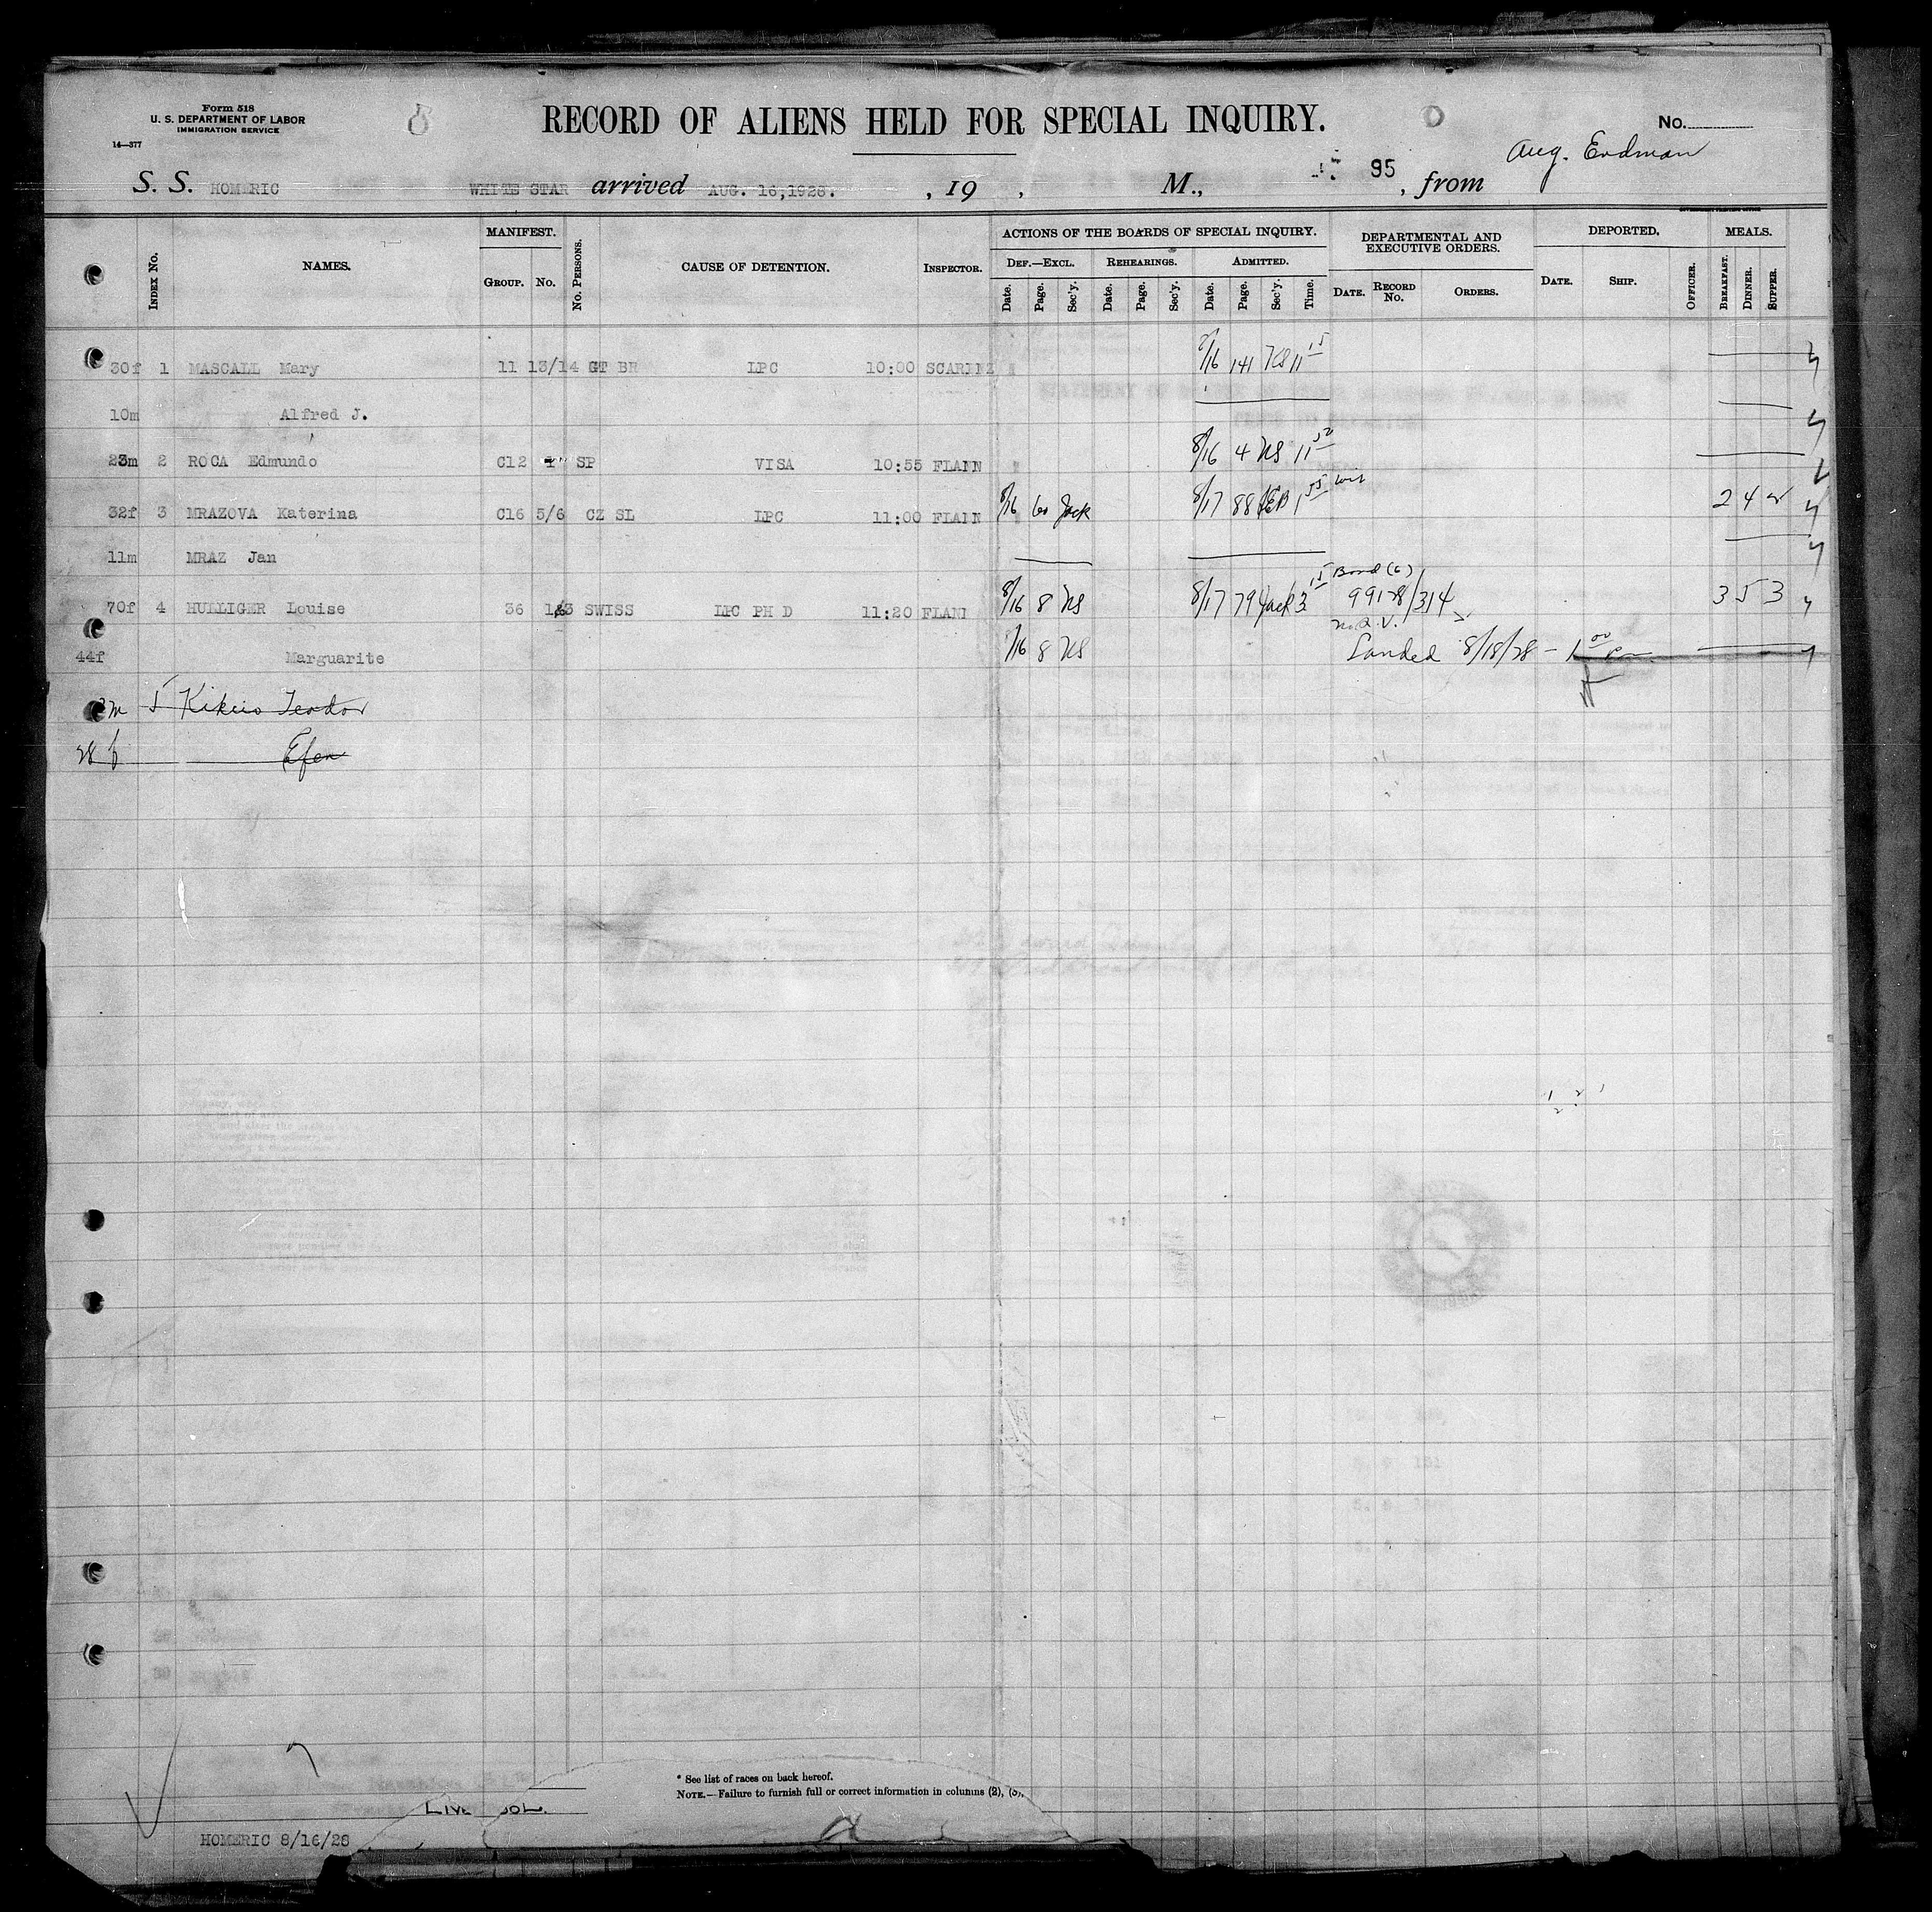 Form 518
U. S. DEPARTMENT OF LABOR
IMMIGRATION SERVICE
14—377
RECORD OF ALIENS HELD FOR SPECIAL INQUIRY.
No.
Aug. Erdman
S. S. HOMERIC WHITE STAR arrived AUG. 16,1928. , 19 , M., 95 , from
INDEX No. NAMES. MANIFEST. GROUP. No. No. PERSONS. CAUSE OF DETENTION. INSPECTOR.
ACTIONS OF THE BOARDS OF SPECIAL INQUIRY. DEF.—EXCL. Date. Page. Sec'y. REHEARINGS. Date. Page. Sec'y. ADMITTED. Date. Page. Sec'y. Time.
DEPARTMENTAL AND EXECUTIVE ORDERS. DATE. RECORD No. ORDERS.
DEPORTED. DATE. SHIP. OFFICER. MEALS. BREAKFAST. DINNER. SUPPER.
30f 1 MASCALL Mary 11 13/14 GT BR LPC 10:00 8/16 141 11 15
10m Alfred J.
23m 2 ROCA Edmundo C12 SP VISA 10:55 8/16 4 NS 11 50
32f 3 MRAZOVA Katerina C16 5/6 CZ SL LPC 11:00 8/16 60 Jack 8/17 88 1 55 2 4
11m MRAZ Jan
70f 4 HULLIGER Louise 36 SWISS LPC PH D 11:20 8/16 8 NS 8/17 79 Jack 3 15 Bond (6) 99178/314 3 5 3
44f Marguarite 8/16 8 NS Landed 8/18/28 – 1 00
5 Teodor
28 f Efen
* See list of races on back hereof.
NOTE.—Failure to furnish full or correct information in columns (2),
HOMERIC 8/16/28